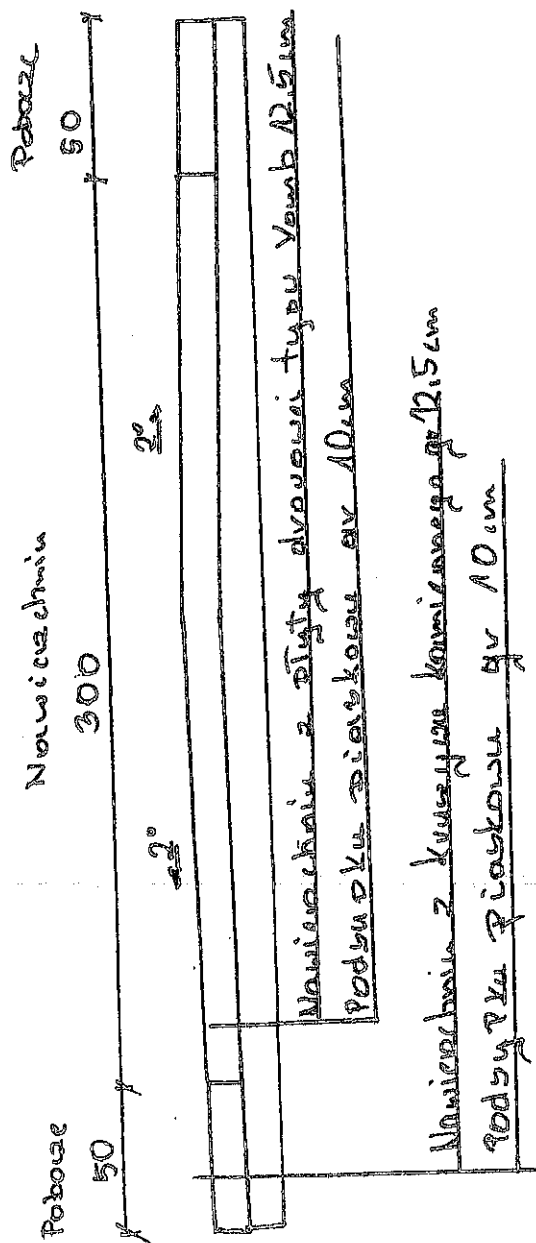 Pobocze Nawierzchnia Pobocze
50 300 50
2° 2°
Nawierzchnia z płyty drogowej typu Yomb 12,5 cm
Podsypka piaskowa gr 10 cm
Nawierzchnia z kruszywa kamiennego gr 12,5 cm
Podsypka piaskowa gr 10 cm